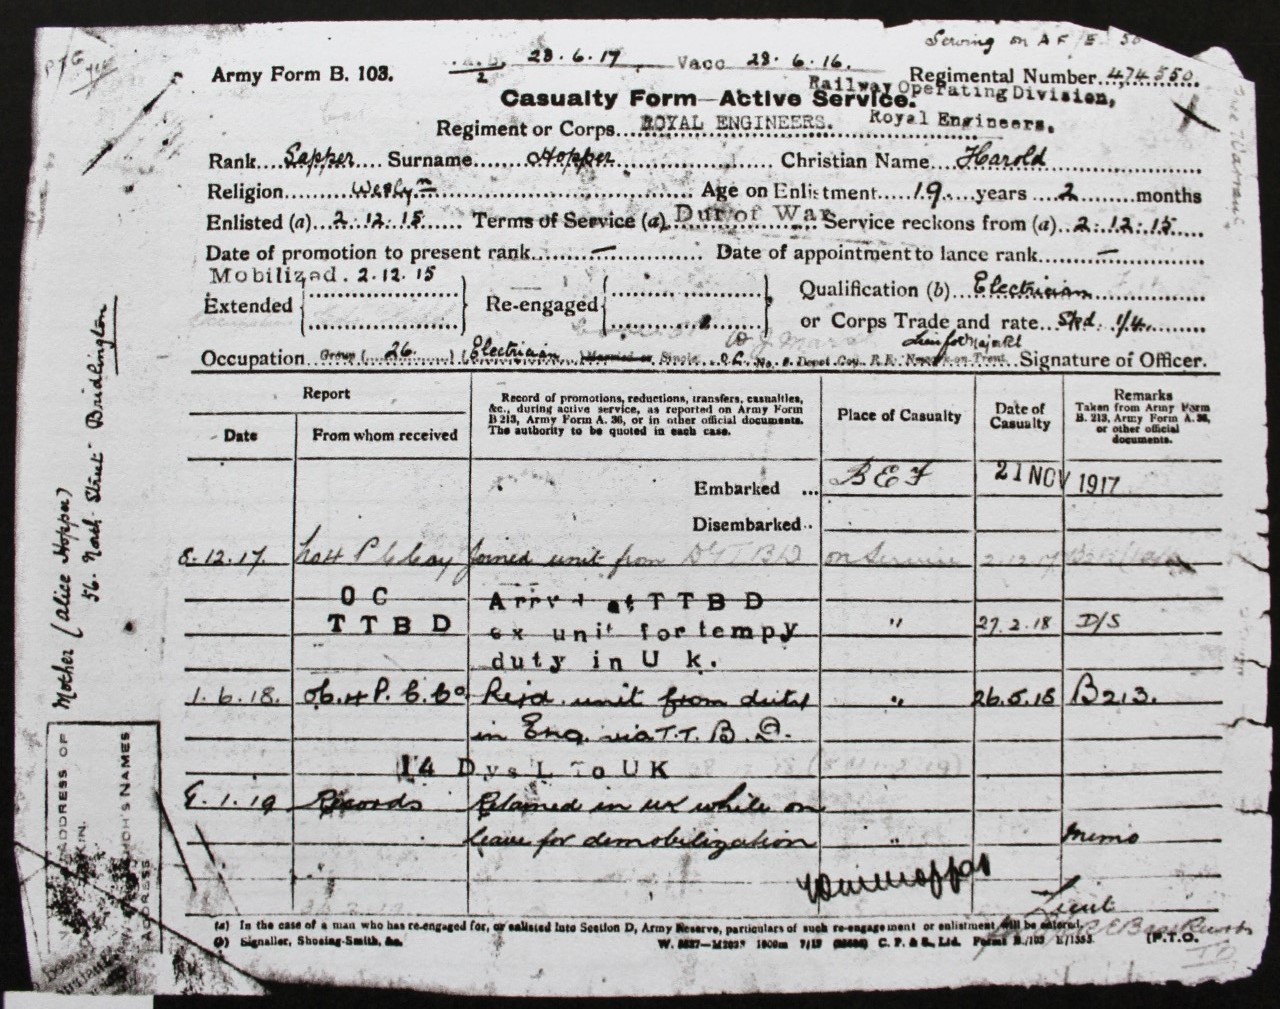 Serving on A F / E. 50
28.6.17. Vacc 28.6.16.
Army Form B. 103.
Regimental Number 474550.
Railway Operating Division,
Royal Engineers.
Casualty Form—Active Service.
Regiment or Corps ROYAL ENGINEERS.
Rank Sapper Surname Hopper Christian Name Harold
Religion Wesly^n Age on Enlistment 19 years 2 months
Enlisted (a) 2.12.15 Terms of Service (a) Dur of War Service reckons from (a) 2.12.15
Date of promotion to present rank — Date of appointment to lance rank —
Mobilized. 2.12.15
Extended Re-engaged Qualification (b) Electrician
or Corps Trade and rate Skd. 1/4.
Occupation Group ( 26. ) (Electrician ) Married or Single. O.C. No. Depot Coy. R.E. Newark-on-Trent Signature of Officer.
Report
Date From whom received
Record of promotions, reductions, transfers, casualties, &c., during active service, as reported on Army Form B 213, Army Form A. 36, or in other official documents. The authority to be quoted in each case.
Place of Casualty
Date of Casualty
Remarks
Taken from Army Form B. 213, Army Form A. 36, or other official documents.
Embarked ... B E F 21 NOV 1917
Disembarked..
8.12.17. Joined unit from on Service 2.12.17
O C Arrvd at T T B D
T T B D ex unit for tempy " 27.2.18 D/S
duty in U k.
1.6.18. Rejd. unit from duty " 26.5.18 B213.
in Eng. via T.T.B.D.
14 Dys L To UK
9.1.19 Records Retained in UK while on
leave for demobilization " Memo
Lieut
(a) In the case of a man who has re-engaged for, or enlisted into Section D, Army Reserve, particulars of such re-engagement or enlistment will be entered.
(b) Signaller, Shoeing-Smith, &c.
(P.T.O.
Mother (Alice Hopper)
56. Nash Street - Bridlington
ADDRESS OF
KIN.
NAMES
ADDRESS